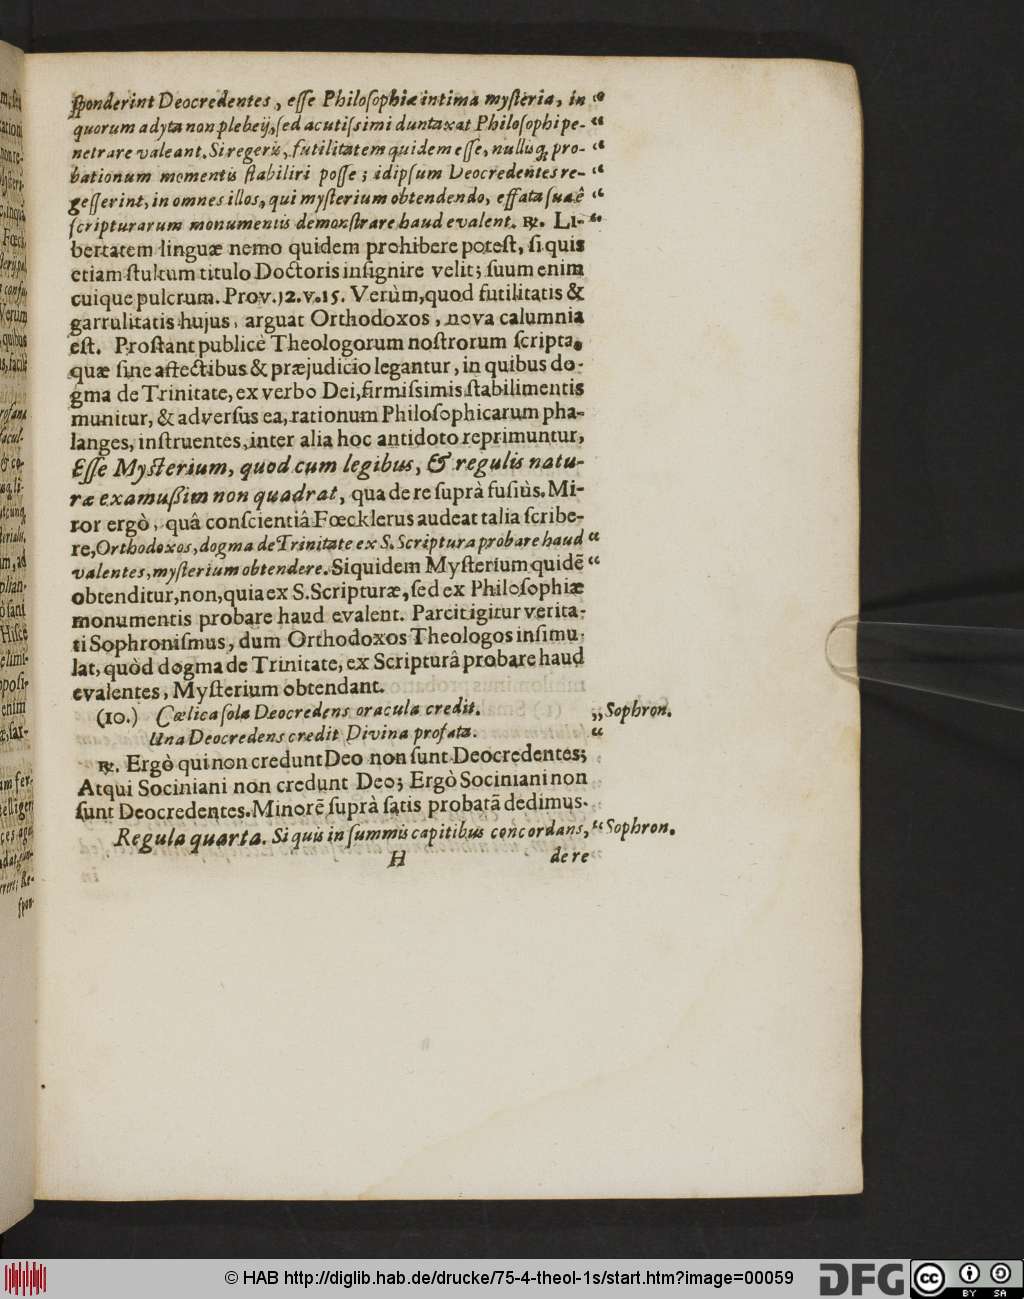 ſponderint Deocredentes, eſſe Philoſophiæ intima myſteria, in “
quorum adyta non plebeij, ſed acutiſsimi duntaxat Philoſophi pe- “
netrare valeant. Si regeris, futilitatem quidem eſſe, nullisq; pro- “
bationum momentis ſtabiliri poſſe; idipſum Deocredentes re- “
geſſerint, in omnes illos, qui myſterium obtendendo, effata ſua è “
ſcripturarum monumentis demonſtrare haud evalent. ℞. LI- “
bertatem linguæ nemo quidem prohibere poteſt, ſi quis
etiam ſtultum titulo Doctoris inſignire velit; ſuum enim
cuique pulcrum. Prov. 12. v. 15. Verùm, quod futilitatis &
garrulitatis hujus, arguat Orthodoxos, nova calumnia
eſt. Proſtant publicè Theologorum noſtrorum ſcripta,
quæ ſine affectibus & præjudicio legantur, in quibus do-
gma de Trinitate, ex verbo Dei, firmiſsimis ſtabilimentis
munitur, & adverſus ea, rationum Philoſophicarum pha-
langes, inſtruentes, inter alia hoc antidoto reprimuntur,
Eſſe Myſterium, quod cum legibus, & regulis natu-
ræ examußim non quadrat, qua de re ſuprà fuſiùs. Mi-
ror ergò, quâ conſcientiâ Fœcklerus audeat talia ſcribe-
re, Orthodoxos, dogma de Trinitate ex S. Scriptura probare haud “
valentes, myſterium obtendere. Siquidem Myſterium quidē “
obtenditur, non, quia ex S. Scripturæ, ſed ex Philoſophiæ
monumentis probare haud evalent. Parcit igitur verita-
ti Sophroniſmus, dum Orthodoxos Theologos inſimu-
lat, quòd dogma de Trinitate, ex Scripturâ probare haud
evalentes, Myſterium obtendant.
(10.) Cœlica ſola Deocredens oracula credit. „ Sophron.
Una Deocredens credit Divina profata. “
℞. Ergò qui non credunt Deo non ſunt Deocredentes;
Atqui Sociniani non credunt Deo; Ergò Sociniani non
ſunt Deocredentes. Minorē ſuprà ſatis probatā dedimus.
Regula quarta. Si quis in ſummis capitibus concordans, “ Sophron.
H de re
© HAB http://diglib.hab.de/drucke/75-4-theol-1s/start.htm?image=00059
DFG
cc BY SA